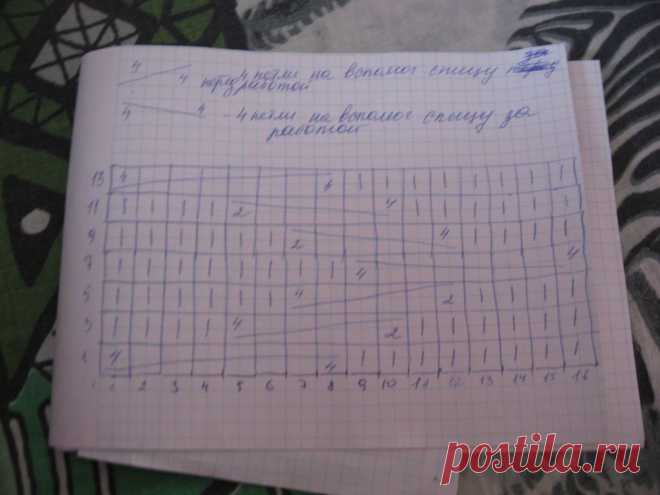 4 4 перед работой 4 петли на вспомог спицу за
4 4 - 4 петли на вспомог спицу за
работой
13 4 4 | | | | | | | |
11 | | | | 2 4 | | | | | |
9 | | | | | | 2 4 | | | |
7 | | | | | | | | 4 4
5 | | | | | | 4 2 | | | |
3 | | | | 4 2 | | | | | |
1 4 4 | | | | | | | |
1 2 3 4 5 6 7 8 9 10 11 12 13 14 15 16
postila.ru